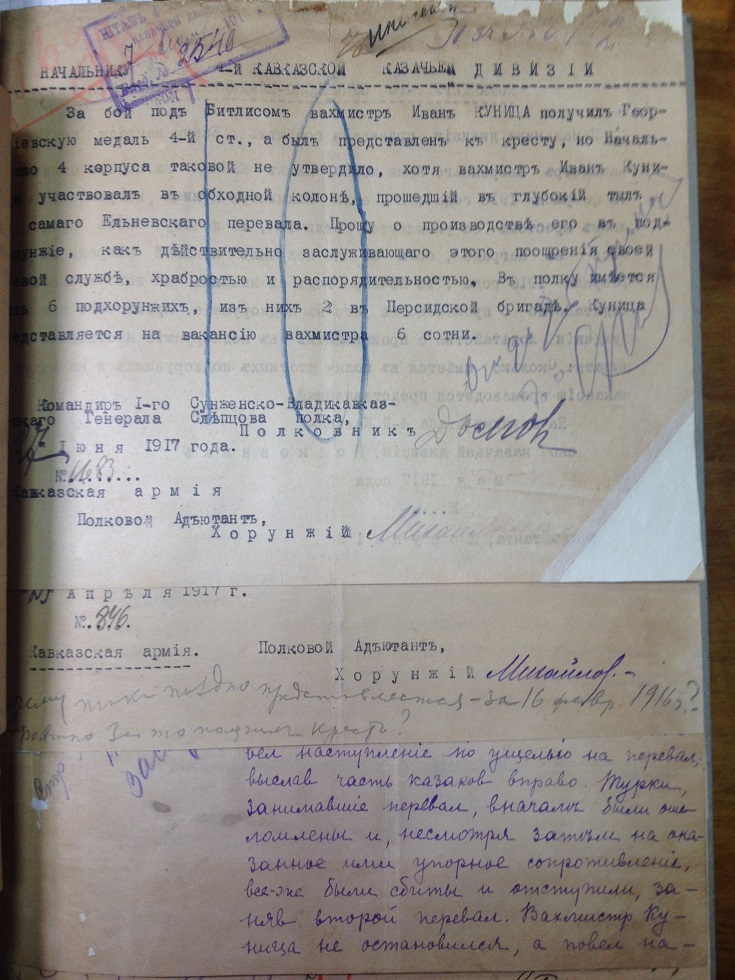 2540
НАЧАЛЬНИКУ 1-й КАВКАЗСКОЙ КАЗАЧЬЕЙ ДИВИЗІИ
За бой подъ Битлисомъ вахмистръ Иванъ КУНИЦА получилъ Геор-
іевскую медаль 4-й ст., а былъ представленъ къ кресту, но Началь-
во 4 корпуса таковой не утвердило, хотя вахмистръ Иванъ Куни-
а участвовалъ въ обходной колонѣ, прошедшій въ глубокій тылъ
самаго Ельневскаго перевала. Прошу о производствѣ его въ под-
рунжіе, какъ дѣйствительно заслуживающаго этого поощренія своей
евой службѣ, храбростью и распорядительностью. Въ полку имѣется
ь 6 подхорунжихъ, изъ нихъ 2 въ Персидской бригадѣ. Куница
дставляется на вакансію вахмистра 6 сотни.
Командиръ I-го Сунженско-Владикавказ-
скаго Генерала Слѣпцова полка,
Полковникъ
27 Іюня 1917 года.
№ 1683....
Кавказская армія
Полковой Адъютантъ,
Хорунжій Михайлов
Апрѣля 1917 г.
№.846.
Кавказская армія.
Полковой Адъютантъ,
Хорунжій Михайлов.-
чему так поздно представляется - за 16 февр. 1916 г?
За то получил крестъ?
вел наступление по ущелью на перевал,
выслав часть казаков вправо Турки,
занимавшіе перевал, вначалѣ были оше-
ломлены и, несмотря затѣм на ока-
занное ими упорное сопротивленіе,
все-же были сбиты и отступили, за-
няв второй перевал. Вахмистр Ку-
ница не остановился, а повел на-